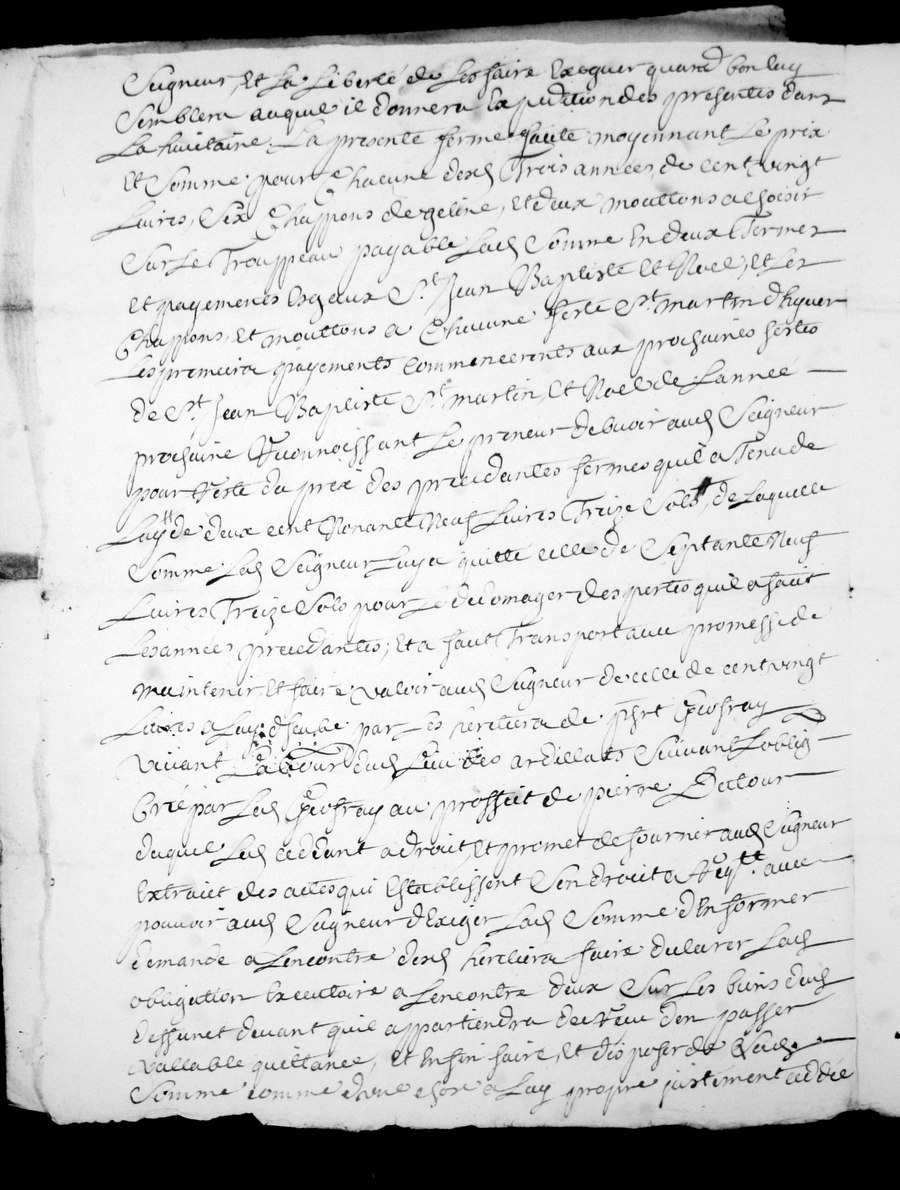 Seigneur, Et La Liberté de Les faire Exequer quand bon luy
Semblera auquel il donnera Expedition des presentes dans
La huitaine. La presente ferme faite moyennant Le prix
Et Somme pour Chacune desd Trois années de cent vingt
Livres, Six Chappons de geline, Et deux mouttons a choisir
Sur Le Trouppeau payable Lad Somme En deux Termes
Et payements Esgeaux St Jean Baptiste Et Noel, Et Les
Chappons, Et mouttons a Chacune feste St martin d'hyver
Les premiers payements Commenceront aux prochaines festes
de St Jean Baptiste St martin, Et Noel de Lannée
prochaine Reconnoissant Le preneur debvoir aud Seigneur
pour Reste du prix des precedantes fermes quil a Tenu de
Luy de deux cent Nonante Neuf Livres Treize Sols, de Laquelle
Somme Led Seigneur Luy a quitté celle de Septante Neuf
Livres Treize Sols pour Le dedomager des pertes quil a faict
Les années precedantes, Et a faict Transport avec promesse de
maintenir Et faire valoir aud Seigneur de celle de cent vingt
Livres a Luy par Les heritiers de Geofray
vivant Laboureur dud Lieu des ardillats Suivant Loblig
par Led Geofray au proffict de pierre Delour
duquel Led ceddant a droit, Et promet de fournir aud Seigneur
Extraict des actes qui Establissent Son droict avec
pouvoir aud Seigneur d'Exiger Lad Somme d'En former
demande a Lencontre desd heritiers faire declarer Lad
obligation Executoire a Lencontre deux Sur Les biens dud
deffunct devant quil appartiendra de Receu d'en passer
vallable quittance, Et Enfin faire, Et disposer de Lad
Somme comme d'une chose a Luy propre justement ceddée